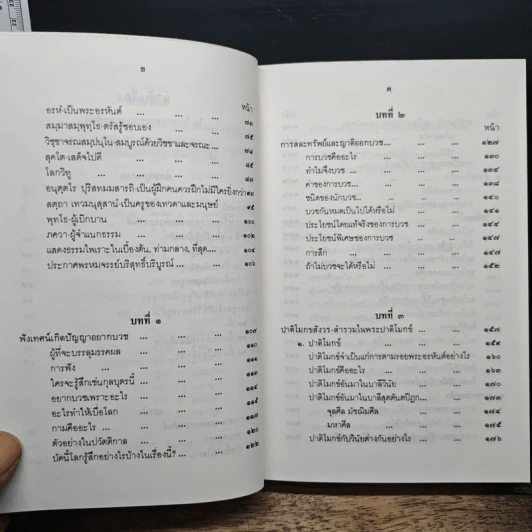 ข
หน้า
อรหํ-เป็นพระอรหันต์ ... ... ... ๗๑
สมฺมาสมฺพุทฺโธ-ตรัสรู้ชอบเอง ... ... ๗๕
วิชฺชาจรณสมฺปนฺโน-สมบูรณ์ด้วยวิชชาและจรณะ ... ๘๕
สุคโต-เสด็จไปดี ... ... ...
โลกวิทู ... ... ... ...
อนุตฺตโร ปุริสทมฺมสารถิ-เป็นผู้ฝึกคนควรฝึกไม่มีใครยิ่งกว่า
สตฺถา เทวมนุสฺสานํ-เป็นครูของเทวดาและมนุษย์ ๙๕
พุทฺโธ-ผู้เบิกบาน ... ... ... ๙๘
ภควา-ผู้จำแนกธรรม ... ... ... ๑๐๒
แสดงธรรมไพเราะในเบื้องต้น, ท่ามกลาง, ที่สุด.... ๑๐๔
ประกาศพรหมจรรย์บริสุทธิ์บริบูรณ์ ... ... ๑๐๖
บทที่ ๑
ฟังเทศน์เกิดปัญญาอยากบวช ... ... ... ๑๐๗
ผู้ที่จะบรรลุมรรคผล ... ... ... ๑๑๐
การฟัง ... ... ... ... ๑๑๑
ใครจะรู้สึกเช่นกุลบุตรนี้ ... ... ...
อยากบวชเพราะอะไร ... ... ... ๑๑๕
อะไรทำให้เบื่อโลก ... ... ...
กามคืออะไร ... ... ... ...
ตัวอย่างในปวัตติกาล ... ... ...
บัดนี้โลกรู้สึกอย่างไรบ้างในเรื่องนี้? ... ... ๑๒๒
ค
บทที่ ๒
หน้า
การสละทรัพย์และญาติออกบวช... ... ... ๑๒๗
การบวชคืออะไร ... ... ... ๑๓๐
ทำไมจึงบวช ... ... ... ๑๓๔
ค่าของการบวช... ... ... ๑๓๘
ชนิดของนักบวช... ... ... ๑๔๐
บวชกันหมดเป็นไปได้หรือไม่ ... ... ๑๔๑
ประโยชน์โดยแท้จริงของการบวช ... ... ๑๔๕
ประโยชน์พิเศษของการบวช ... ... ๑๔๗
การสึก ... ... ... ๑๔๗
ถ้าไม่บวชจะได้หรือไม่ ... ... ... ๑๕๒
บทที่ ๓
ปาติโมกขสังวร-สำรวมในพระปาติโมกข์ ... ... ๑๕๗
๑. ปาติโมกข์ ... ... ... ๑๕๙
ปาติโมกข์จำเป็นแก่การตามรอยพระอรหันต์อย่างไร ๑๖๐
ปาติโมกข์คืออะไร ... ... ... ๑๖๓
ปาติโมกข์อันมาในบาลีวินัย ... ...
ปาติโมกข์อันมาในบาลีสุตตันตปิฎก... ...
จุลศีล มัชฌิมศีล ... ... ๑๗๔
มหาศีล ... ... ๑๗๕
ปาติโมกข์กับวินัยต่างกันอย่างไร ... ... ๑๗๖